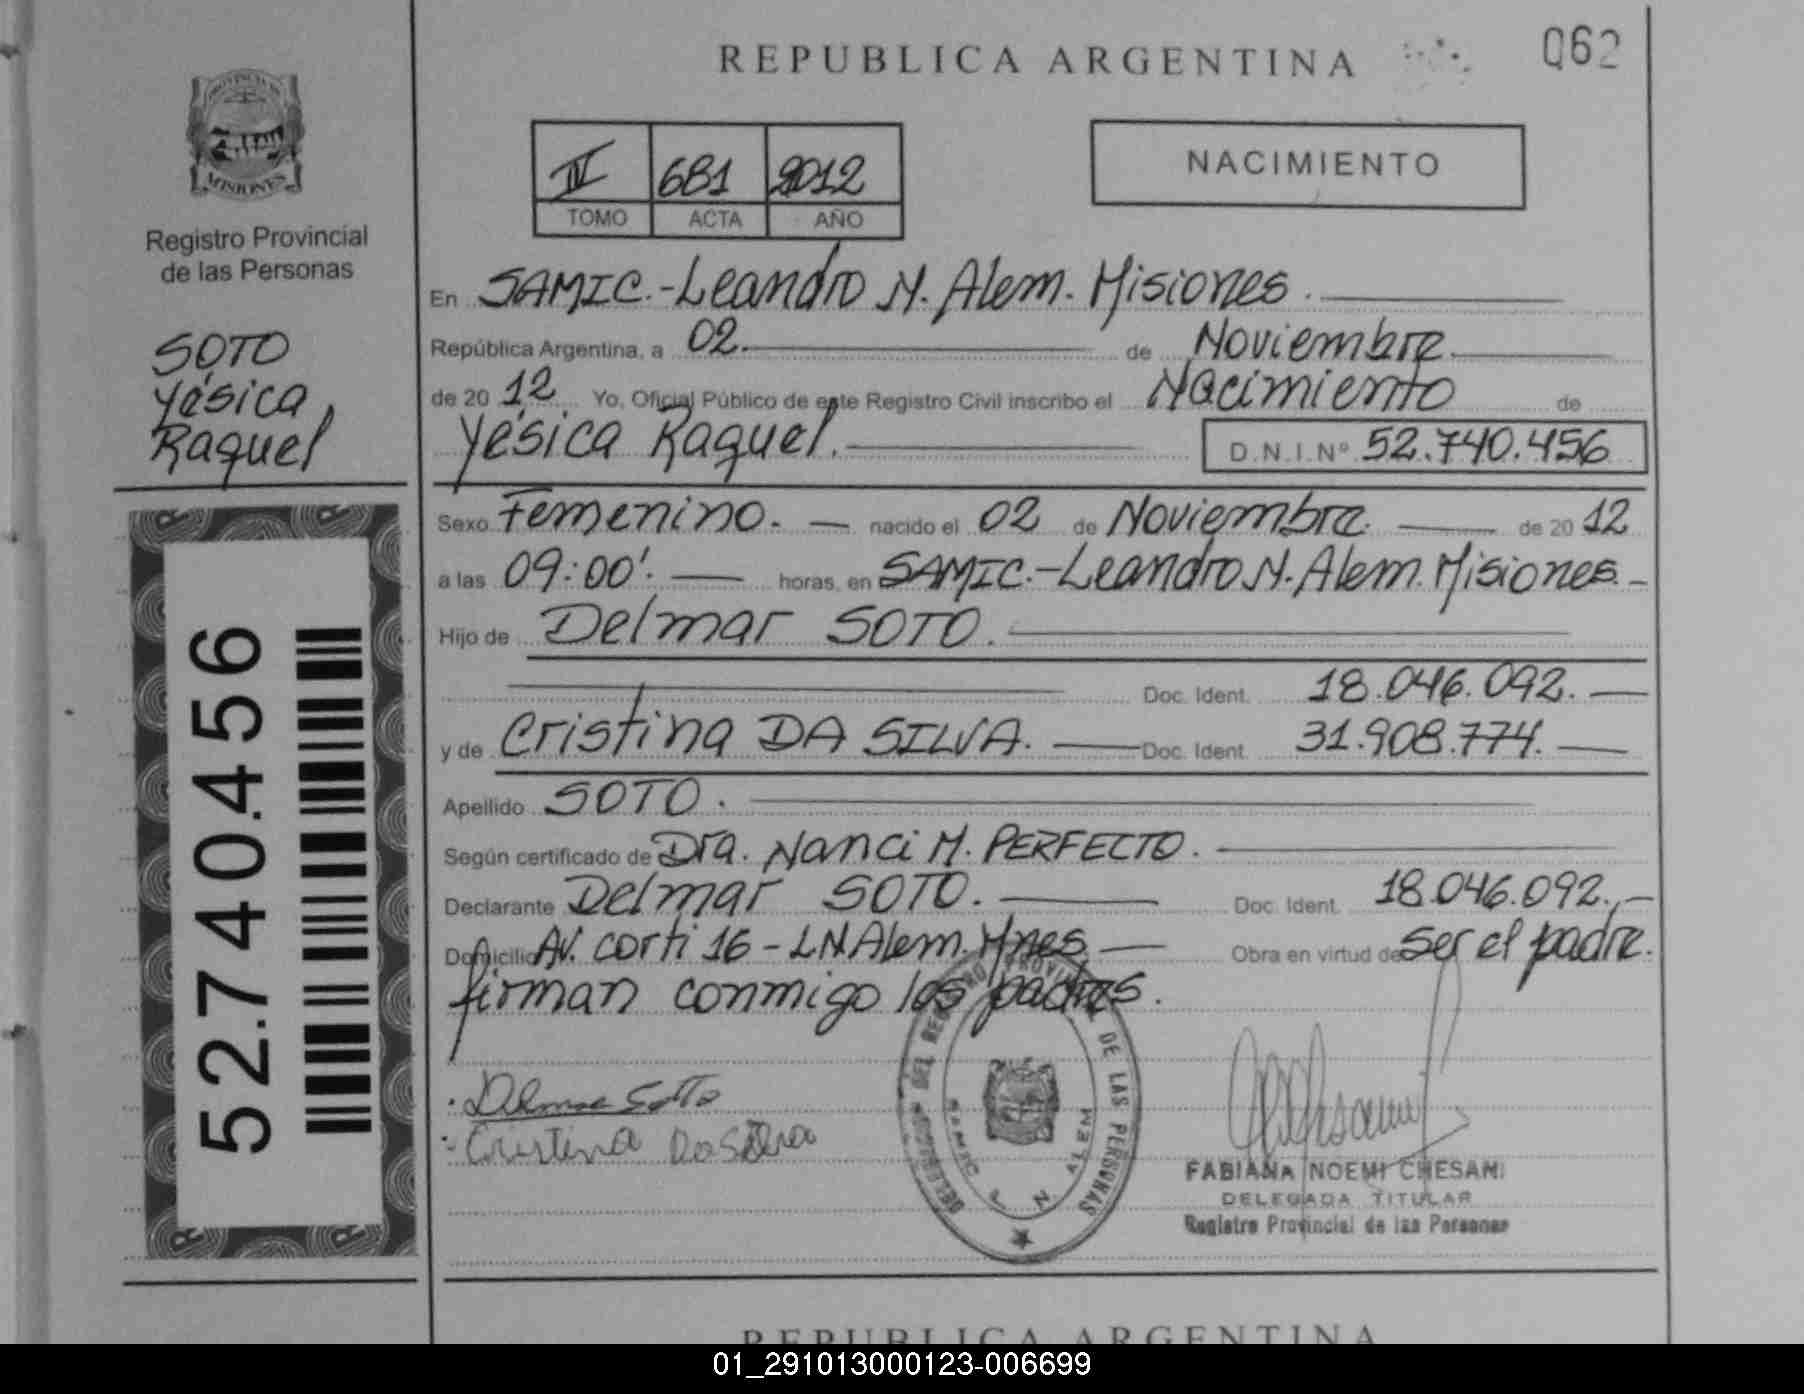 REPUBLICA ARGENTINA
062
PROVINCIA DE
MISIONES
Registro Provincial
de las Personas
SOTO
Yésica
Raquel
52.740.456
IV 681 2012
TOMO ACTA AÑO
NACIMIENTO
En SAMIC.-Leandro N. Alem. Misiones.
República Argentina, a 02. de Noviembre
de 20 12 Yo, Oficial Público de este Registro Civil inscribo el Nacimiento de
Yésica Raquel. D.N.I.Nº 52.740.456
Sexo Femenino. — nacido el 02 de Noviembre. — de 20 12
a las 09:00'. — horas, en SAMIC.-Leandro N. Alem. Misiones. -
Hijo de Delmar SOTO.
Doc. Ident. 18.046.092. —
y de Cristina DA SILVA. — Doc. Ident. 31.908.774. —
Apellido SOTO.
Según certificado de Dra. Nanci M. PERFECTO.
Declarante Delmar SOTO. — Doc. Ident. 18.046.092.-
Domicilio Av. corti 16 - LN Alem. Mnes — Obra en virtud de ser el padre.
firman conmigo los padres.
Cristina Da Silva
DEL REGISTRO PROVINCIAL DE LAS PERSONAS
SAMIC L. N. ALEM
FABIANA NOEMI CHESANI
DELEGADA TITULAR
Registro Provincial de las Personas
REPUBLICA ARGENTINA
01_291013000123-006699